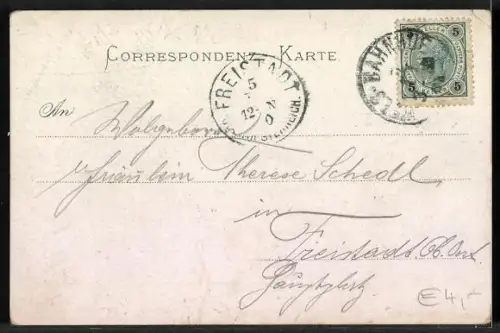 CORRESPONDENZ-KARTE
BAHNHOF
5 5
FREISTADT
5
12-N
An
Wolgeboren
Fräulein Therese Schedl
in
Freistadt Ob. Oest.
Hauptplatz
€4,-